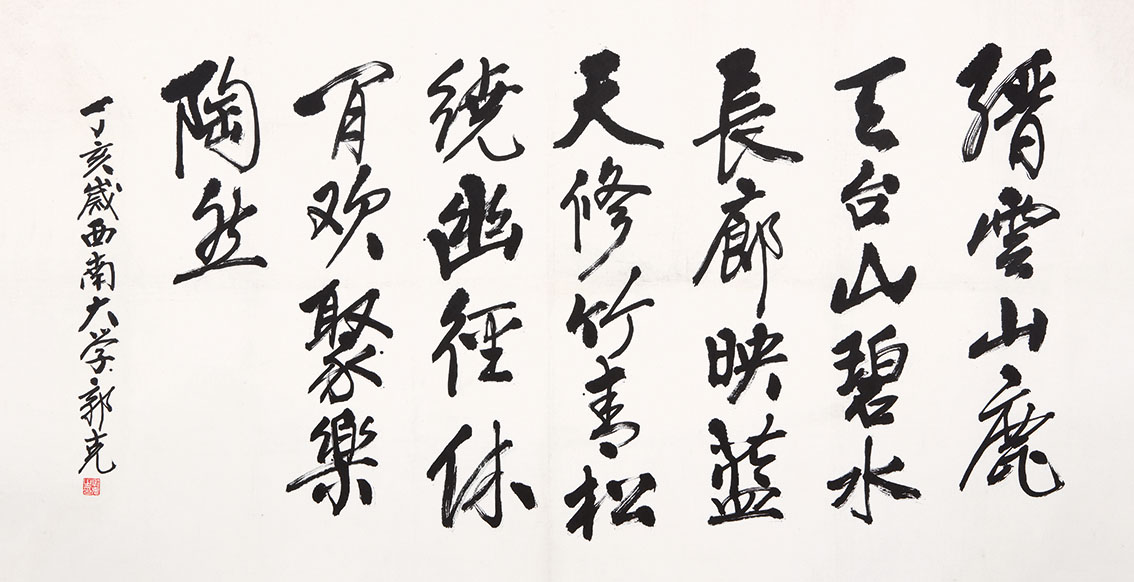 縉雲山鹿
天台山碧水
長廊映藍
天修竹青松
繞幽徑休
閒欢聚樂
陶然
丁亥歲西南大学郭克